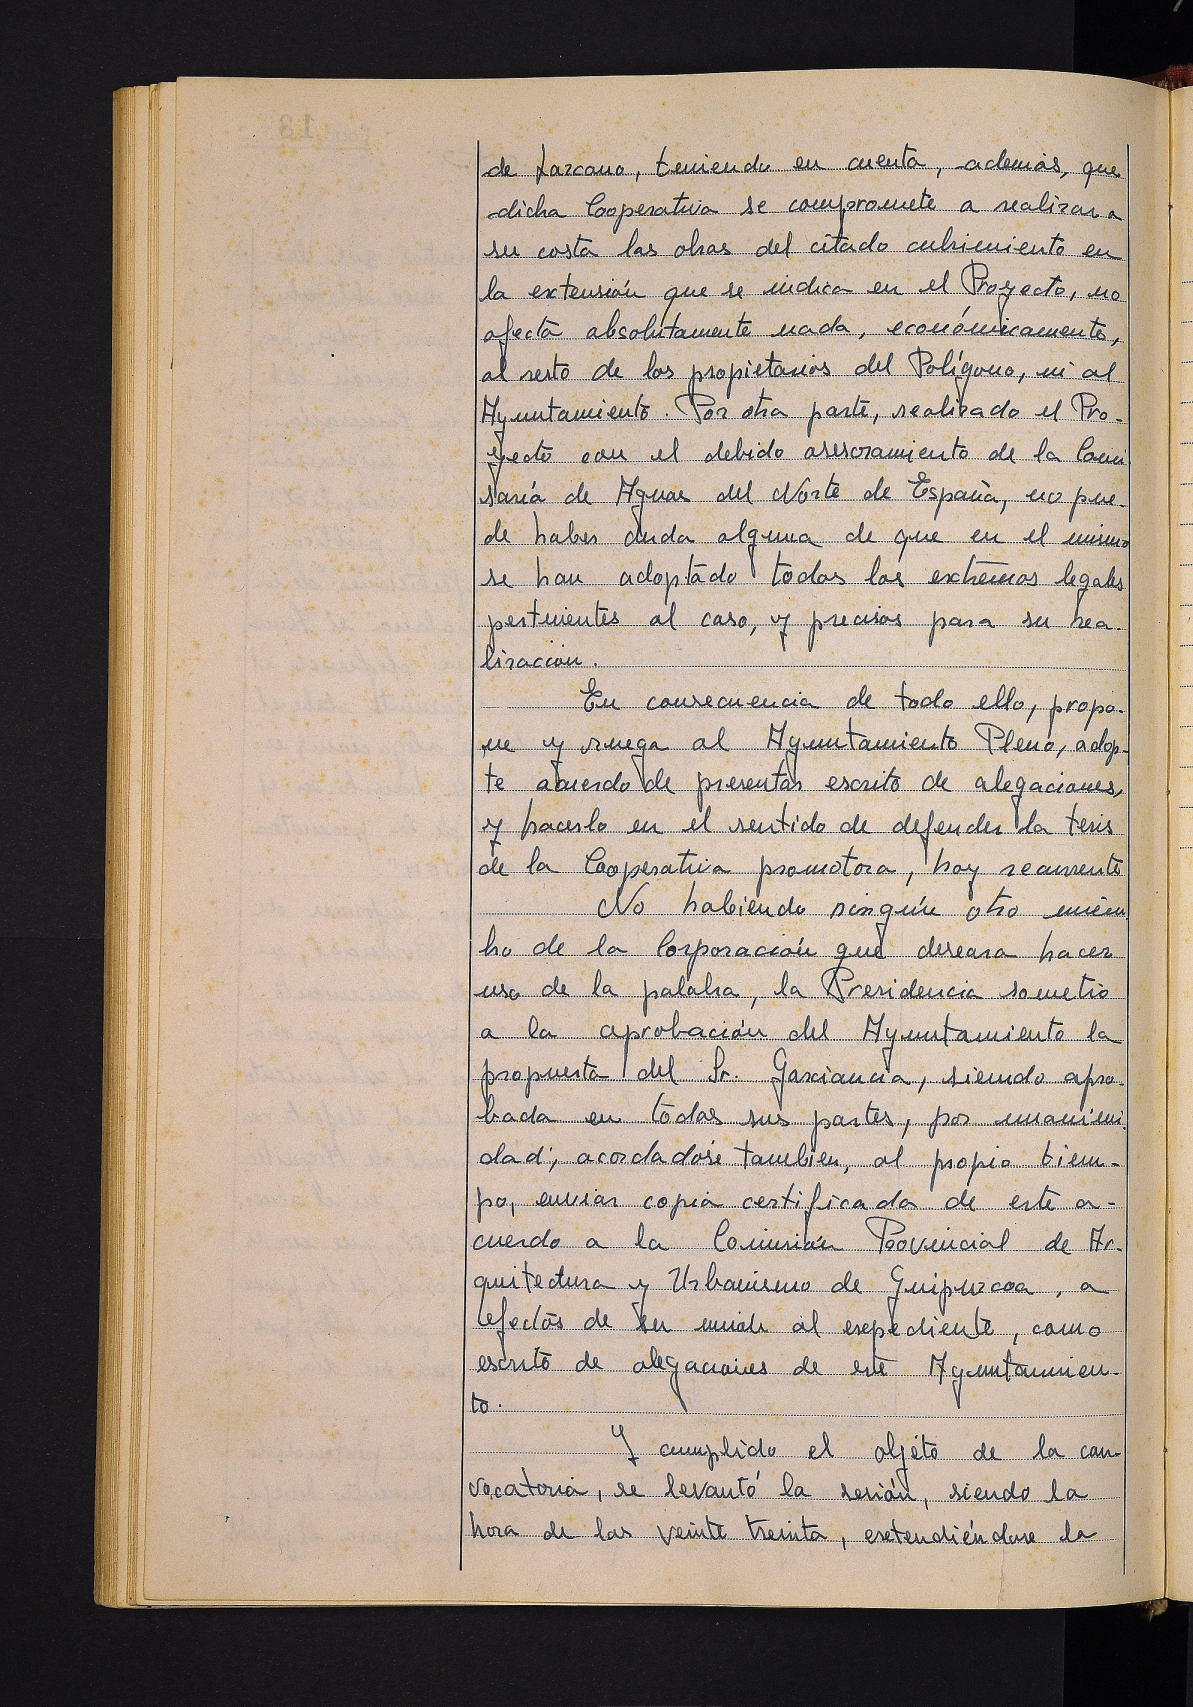 de Lazcano, teniendo en cuenta, además, que
dicha Cooperativa se compromete a realizar a
su costa las obras del citado cubrimiento en
la extensión que se indica en el Proyecto, no
afecta absolutamente nada, económicamente,
al resto de los propietarios del Polígono, ni al
Ayuntamiento. Por otra parte, realizado el Pro-
yecto con el debido asesoramiento de la Comi
saría de Aguas del Norte de España, no pue-
de haber duda alguna de que en el mismo
se han adoptado todos los extremos legales
pertinentes al caso, y precisos para su rea-
lización.
En consecuencia de todo ello, propo-
ne y ruega al Ayuntamiento Pleno, adop-
te acuerdo de presentar escrito de alegaciones,
y hacerlo en el sentido de defender la tesis
de la Cooperativa promotora, hoy recurrente
No habiendo ningún otro miem
bro de la Corporación que deseara hacer
uso de la palabra, la Presidencia sometió
a la aprobación del Ayuntamiento la
propuesta del Sr. Garciancia, siendo apro-
bada en todas sus partes, por unanimi-
dad; acordadose tambien, al propio tiem-
po, enviar copia certificada de este a-
cuerdo a la Comisión Provincial de Ar-
quitectura y Urbanismo de Guipuzcoa, a
efectos de su unión al expediente, como
escrito de alegaciones de este Ayuntamien-
to.
Y cumplido el objeto de la con-
vocatoria, se levantó la sesión, siendo la
hora de las veinte treinta, extendiéndose la